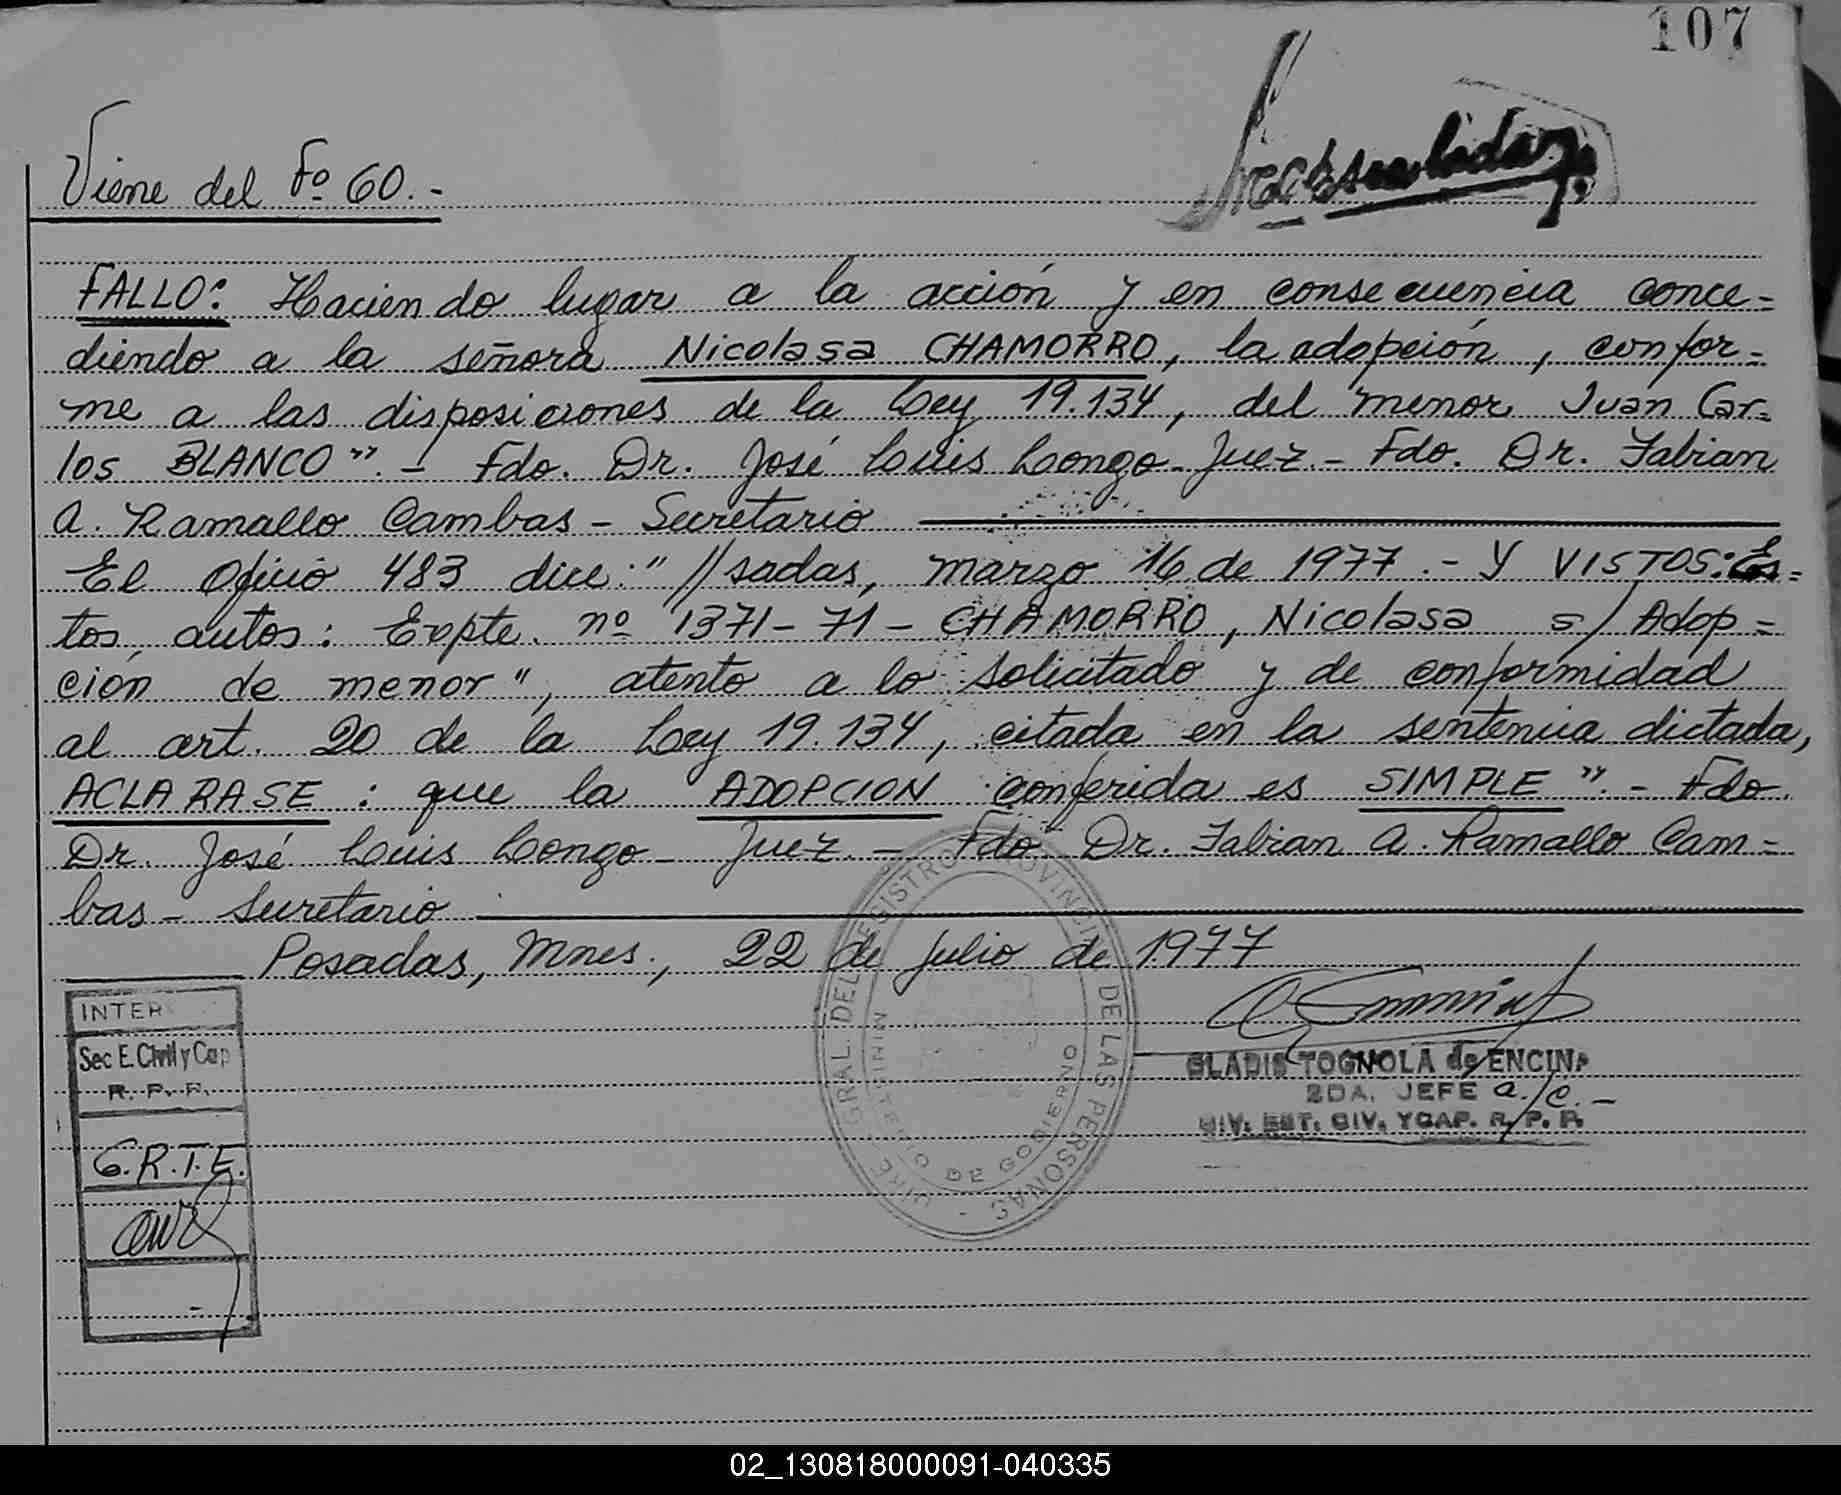 107
Viene del Fº 60.-
FALLO: Haciendo lugar a la acción y en consecuencia conce=
diendo a la señora Nicolasa CHAMORRO, la adopción, confor=
me a las disposiciones de la Ley 19.134, del menor Juan Car=
los BLANCO".- Fdo. Dr. José Luis Longo - Juez.- Fdo. Dr. Fabian
A. Ramallo Cambas - Secretario
El Oficio 483 dice: "//sadas, marzo 16 de 1977.- Y VISTOS: Es=
tos autos: Expte. nº 1371-71- CHAMORRO, Nicolasa s/ Adop=
ción de menor", atento a lo solicitado y de conformidad
al art. 20 de la Ley 19.134, citada en la sentencia dictada,
ACLARASE: que la ADOPCION conferida es SIMPLE".- Fdo.
Dr. José Luis Longo - Juez.- Fdo. Dr. Fabian A. Ramallo Cam=
bas - Secretario
Posadas, Mnes., 22 de julio de 1977
INTER
Sec E. Civil y Cap
R. P. P.
C.R.T.E.
GRAL. DEL REGISTRO PROVINCIAL DE LAS PERSONAS
MINISTERIO DE GOBIERNO
GLADIS TOGNOLA de ENCINA
2DA. JEFE a/c.-
DIV. EST. CIV. Y CAP. R. P. P.
02_130818000091-040335